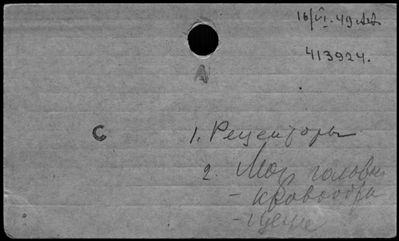 16/VI.49
413924.
А
С
1. Рецепторы
2. Мозг голови
- кровообра